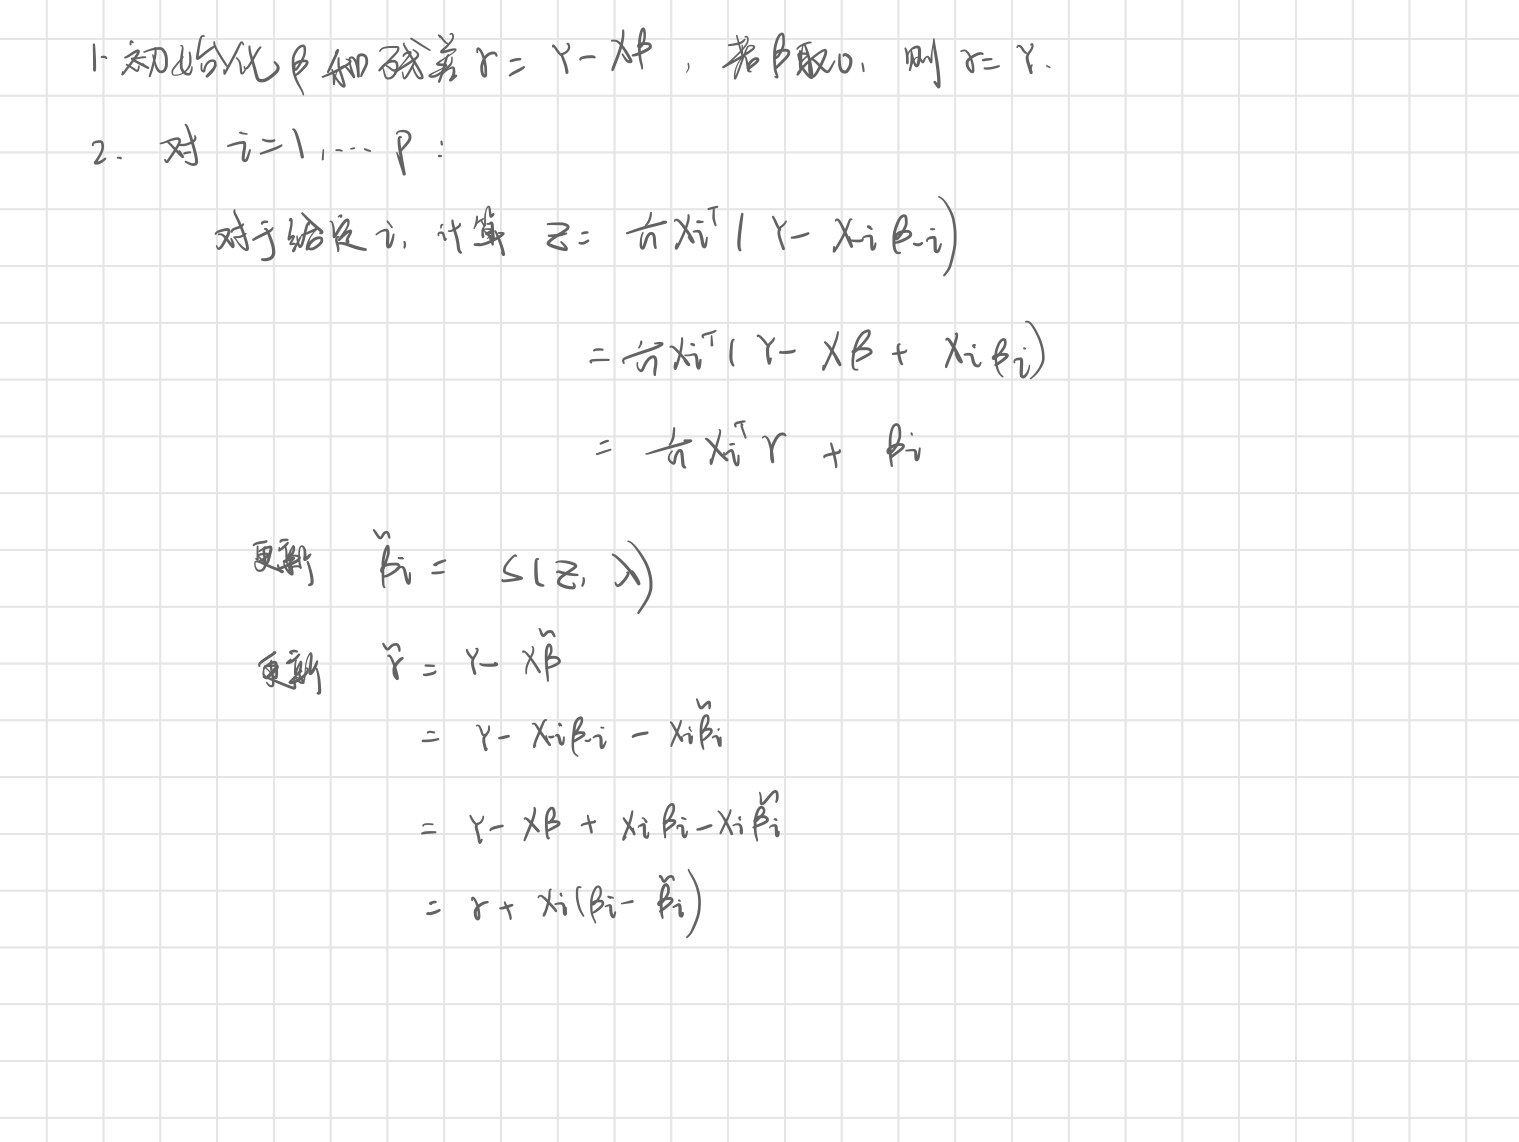 1. 初始化 β 和 残差 r = Y - Xβ , 若 β 取 0, 则 r = Y.
2. 对 i = 1, ... p :
对于给定 i, 计算 z = 1/n Xᵢᵀ ( Y - X₋ᵢ β₋ᵢ )
= 1/n Xᵢᵀ ( Y - Xβ + Xᵢ βᵢ )
= 1/n Xᵢᵀ r + βᵢ
更新 β̃ᵢ = S( z, λ )
更新 r̃ = Y - Xβ̃
= Y - X₋ᵢβ₋ᵢ - Xᵢβ̃ᵢ
= Y - Xβ + Xᵢ βᵢ - Xᵢ β̃ᵢ
= r + Xᵢ( βᵢ - β̃ᵢ )